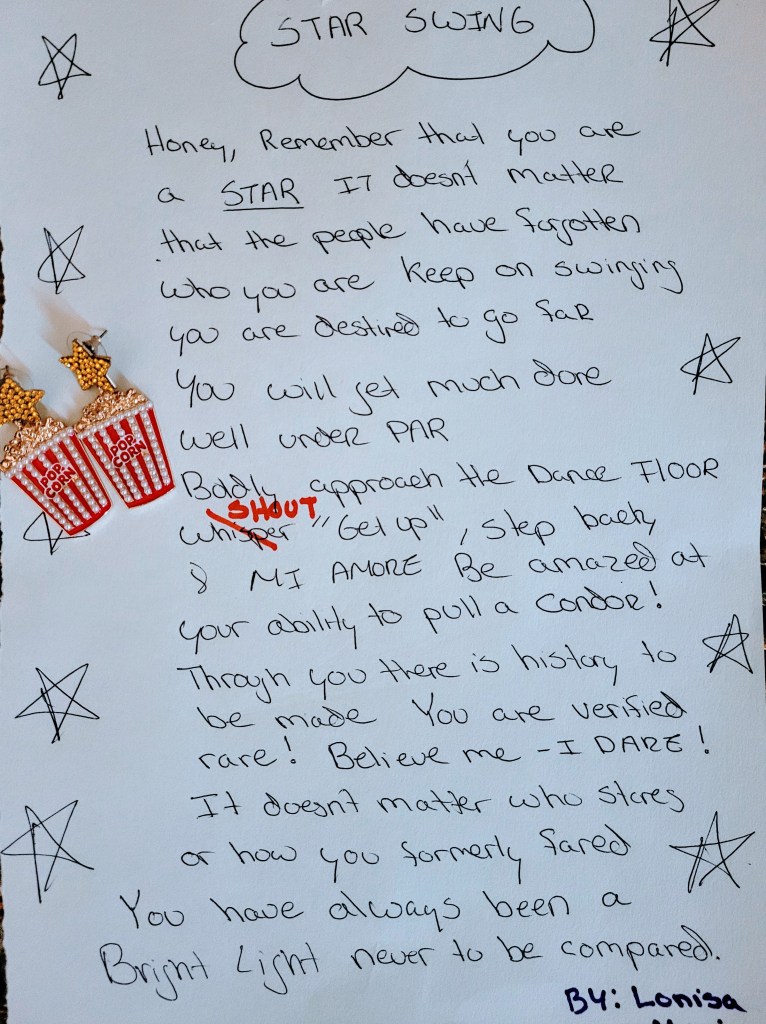 STAR SWING
Honey, Remember that you are
a STAR IT doesn't matter
that the people have forgotten
who you are keep on swinging
you are destined to go faR
You will get much done
well undeR PAR
Boldly approach the Dance FLOOR
SHOUT
whisper "Get up", step back,
& MI AMORE Be amazed at
your ability to pull a Condor!
Through you there is history to
be made You are verified
rare! Believe me - I DARE!
It doesn't matter who stares
or how you formerly fared
You have always been a
Bright Light never to be compared.
By: Lonisa
POP
CORN
POP
CORN